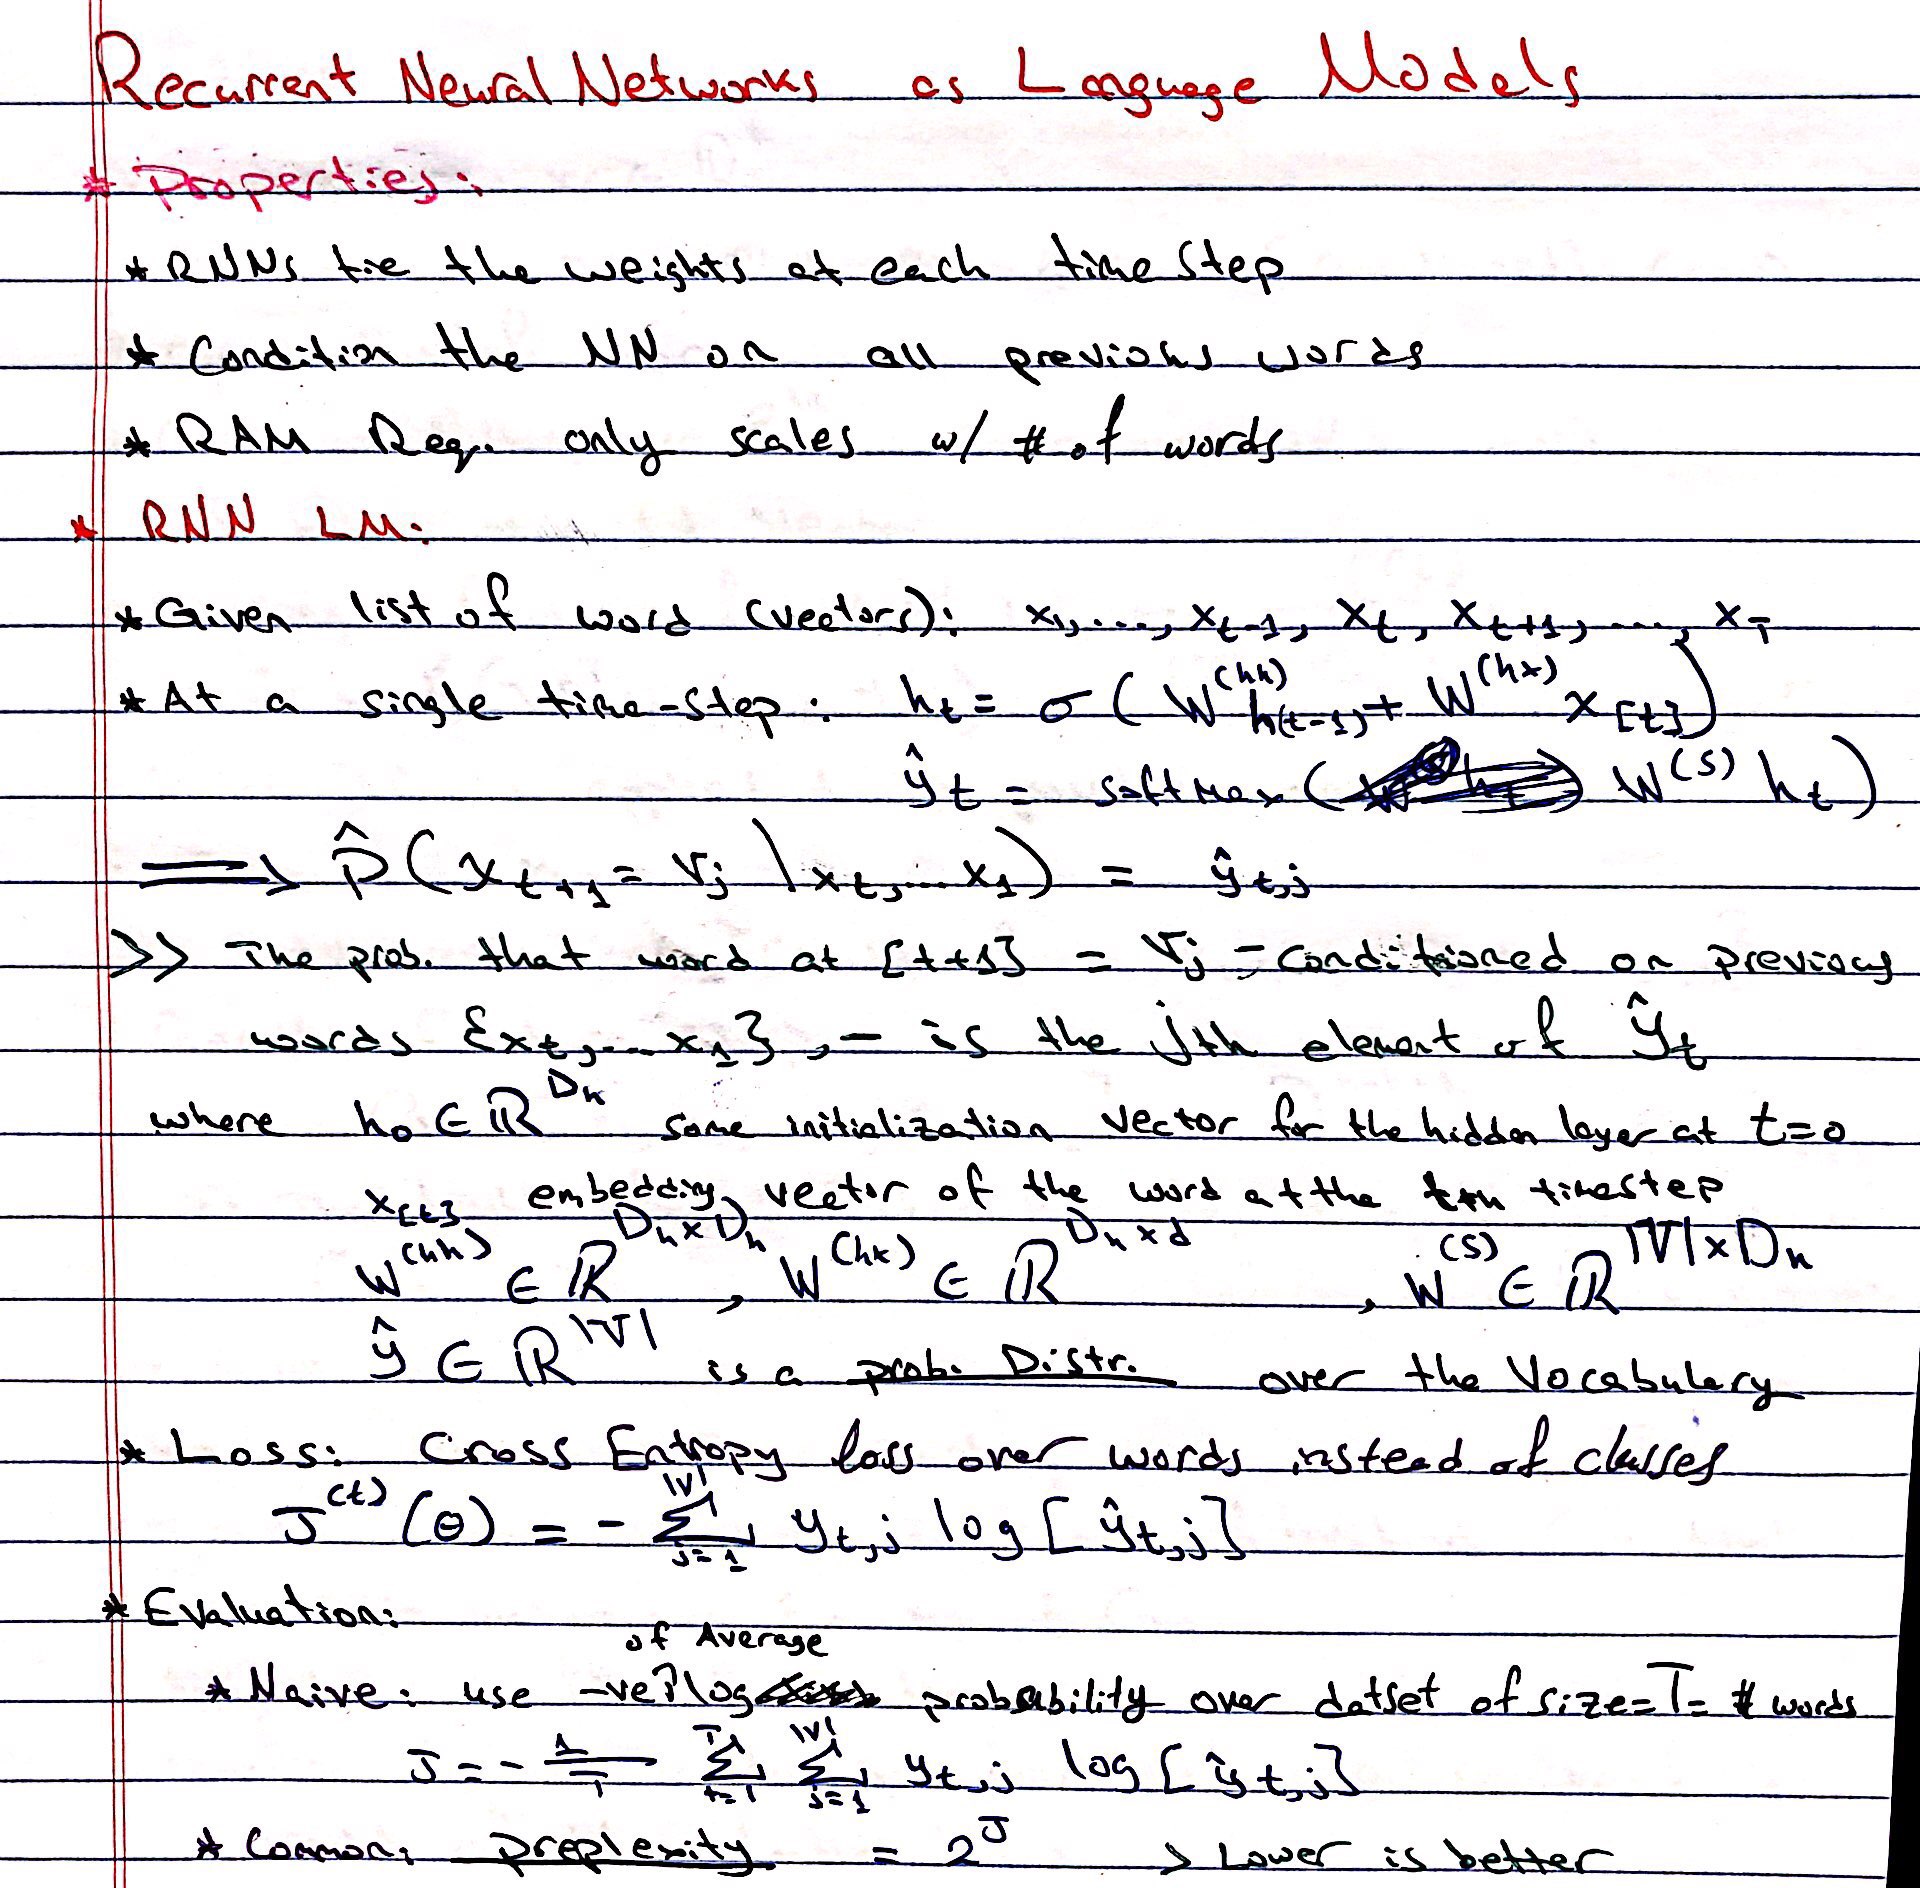 Recurrent Neural Networks as Language Models
* Properties:
* RNNs tie the weights at each time step
* Condition the NN on all previous words
* RAM Req. only scales w/ # of words
* RNN LM:
* Given list of word (vectors): x₁, ..., x_{t-1}, x_t, x_{t+1}, ..., x_T
* At a single time-step: h_t = σ( W^{(hh)} h_{(t-1)} + W^{(hx)} x_{[t]} )
ŷ_t = softmax ( W^{(S)} h_t )
⟹ P̂( x_{t+1} = v_j | x_t, ... x_1 ) = ŷ_{t,j}
>> The prob. that word at [t+1] = v_j - conditioned on previous
words {x_t, ... x_1}, - is the jth element of ŷ_t
where h₀ ∈ ℝ^{D_h} some initialization vector for the hidden layer at t=0
x_{[t]} embedding vector of the word at the tth timestep
W^{(hh)} ∈ ℝ^{D_h × D_h}, W^{(hx)} ∈ ℝ^{D_h × d}, W^{(S)} ∈ ℝ^{|V| × D_h}
ŷ ∈ ℝ^{|V|} is a prob. Distr. over the Vocabulary
* Loss: Cross Entropy loss over words instead of classes
J^{(t)} (θ) = - Σ_{j=1}^{|V|} y_{t,j} log [ ŷ_{t,j} ]
* Evaluation:
of Average
* Naive: use -ve log probability over datset of size = T = # words
J = - 1/T Σ_{t=1}^{T} Σ_{j=1}^{|V|} y_{t,j} log [ ŷ_{t,j} ]
* Common: preplexity = 2^J > Lower is better